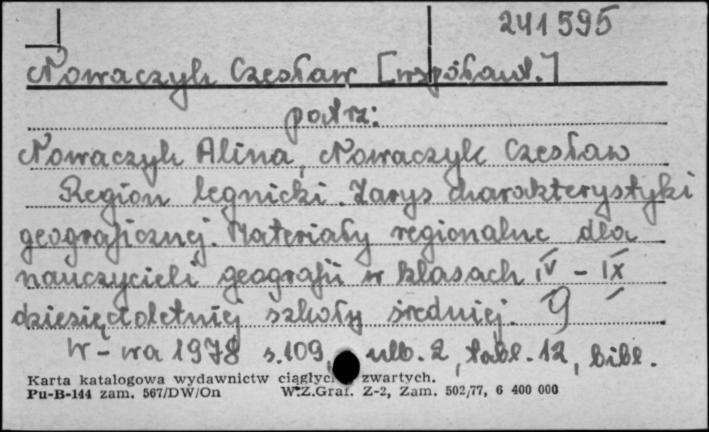 241595
Nowaczyk Czesław [współaut.]
patrz:
Nowaczyk Alina, Nowaczyk Czesław
Region legnicki. Zarys charakterystyki
geograficznej. Materiały regionalne dla
nauczycieli geografii w klasach IV - IX
dziesięcioletniej szkoły średniej. 9
W-wa 1978 s. 109, nlb. 2, tabl. 12, bibl.
Karta katalogowa wydawnictw ciągłych zwartych.
Pu-B-144 zam. 567/DW/On W.Z.Graf. Z-2, Zam. 502/77, 6 400 000